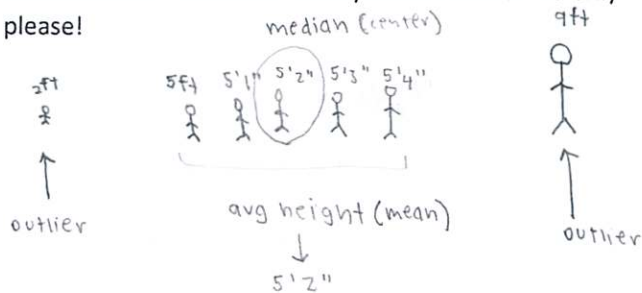 please!
median (center)
9ft
2ft
5ft 5'1" 5'2" 5'3" 5'4"
outlier
avg height (mean)
outlier
5'2"